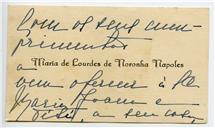 Com os seus cum-
primentos
Maria de Lourdes de Noronha Napoles
vem oferecer à
Maria Joana e
a seu